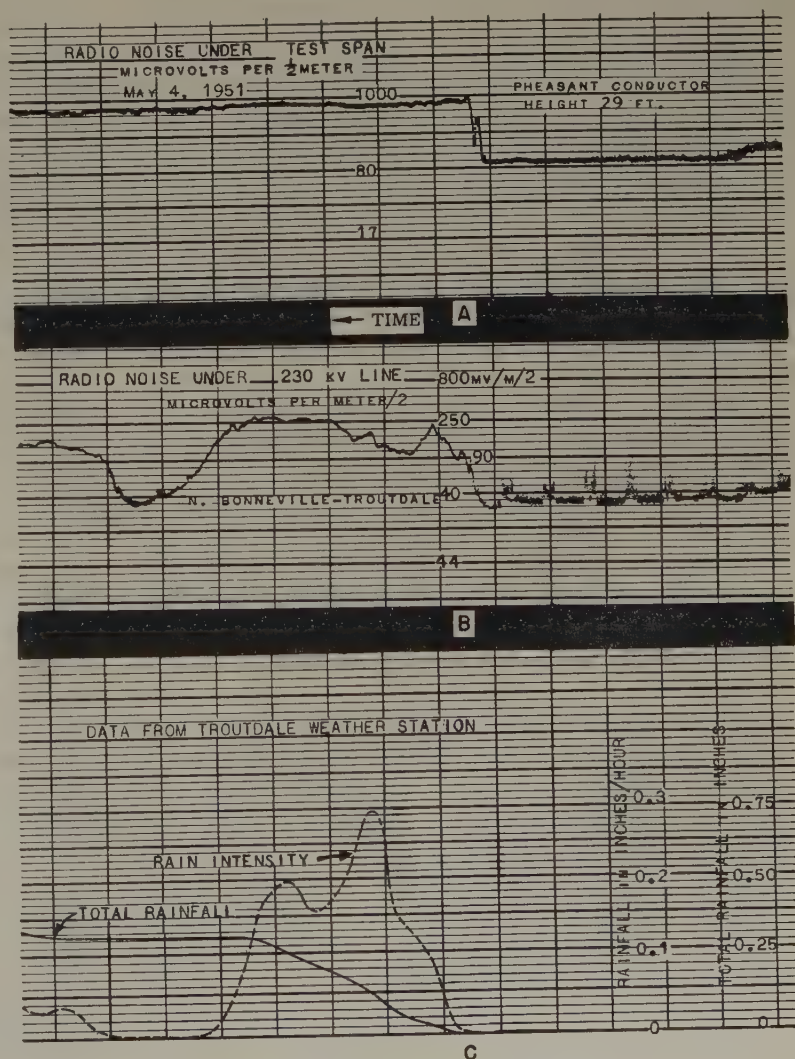 RADIO NOISE UNDER TEST SPAN
MICROVOLTS PER 1/2 METER
MAY 4, 1951
1000
PHEASANT CONDUCTOR
HEIGHT 29 FT.
80
17
← TIME
A
RADIO NOISE UNDER 230 KV LINE 800MV/M/2
MICROVOLTS PER METER/2
250
90
40
N. BONNEVILLE-TROUTDALE
44
B
DATA FROM TROUTDALE WEATHER STATION
RAINFALL IN INCHES/HOUR
TOTAL RAINFALL IN INCHES
0.3
0.75
RAIN INTENSITY
0.2
0.50
TOTAL RAINFALL
0.1
0.25
0
0
C